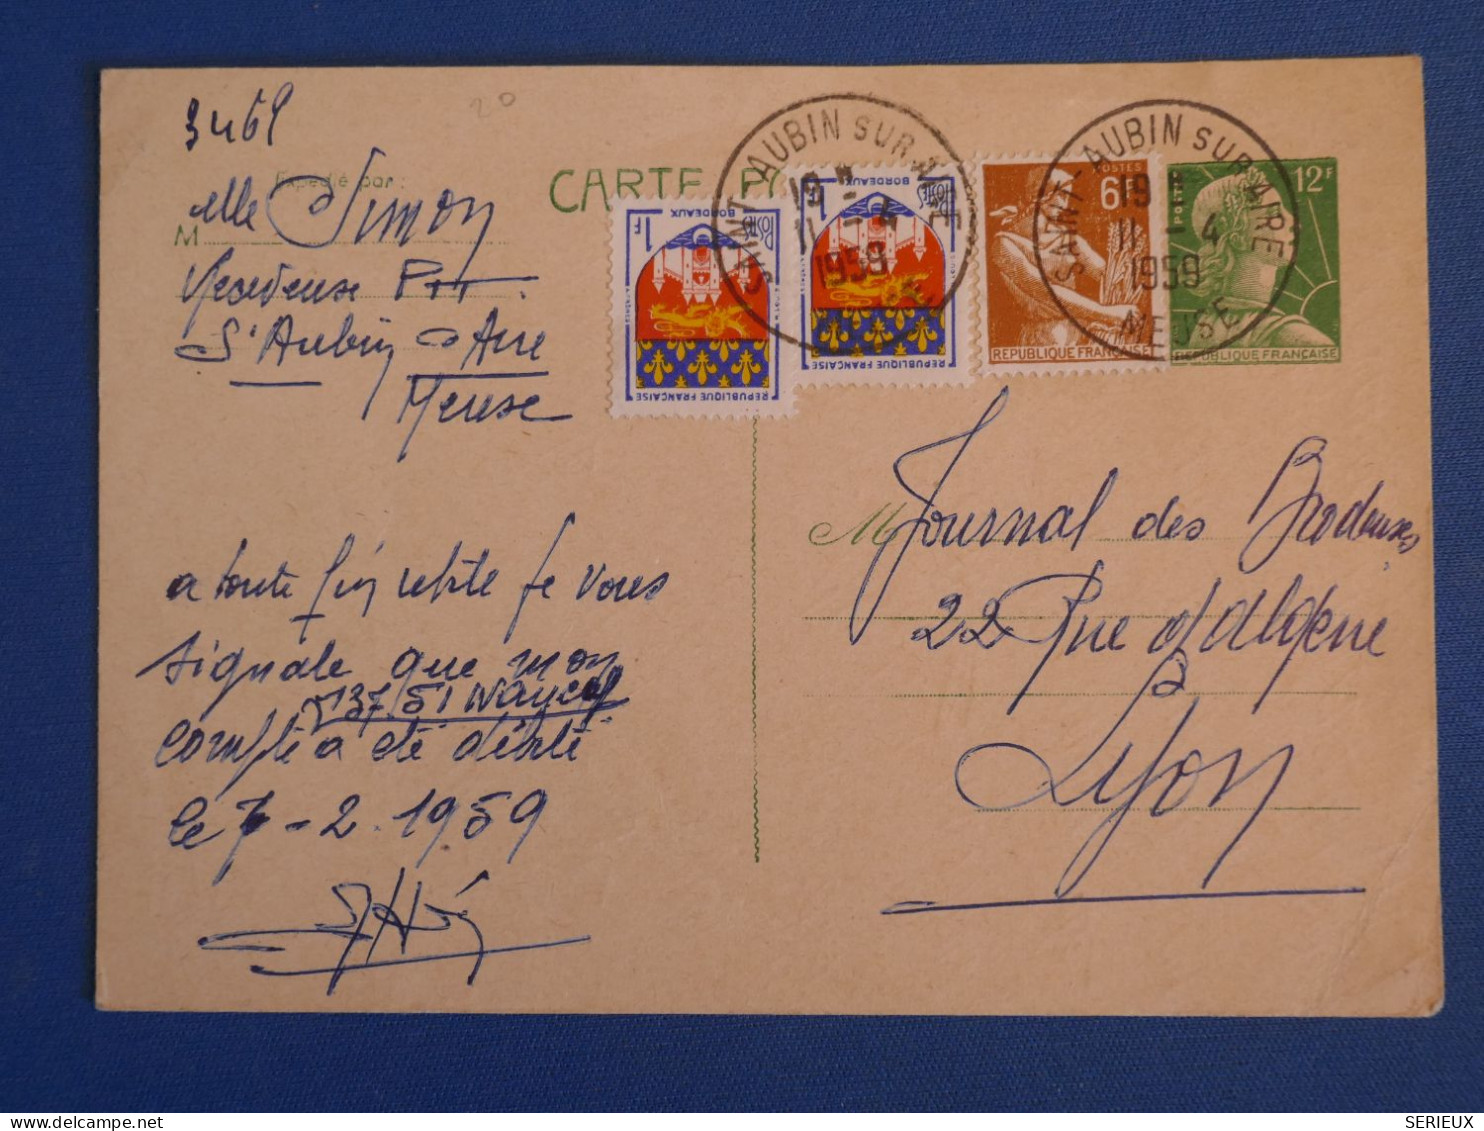 3469
20
Expédié par :
CARTE P
M elle Simon
Receveuse PTT
St Aubin s Aire
Meuse
POSTES
BORDEAUX
1F
REPUBLIQUE FRANÇAISE
POSTES
BORDEAUX
1F
REPUBLIQUE FRANÇAISE
POSTES
6F
REPUBLIQUE FRANÇAISE
12F
REPUBLIQUE FRANÇAISE
SAINT-AUBIN SUR AIRE
19 H
11 - 4
1959
MEUSE
SAINT-AUBIN SUR AIRE
19 H
11 - 4
1959
MEUSE
a toute fin utile je vous
signale que mon
13751 Nancy
compte a été débité
le 7-2.1959
M Journal des Brodeuses
22 Rue d'Algérie
Lyon
SERIEUX
www.delcampe.net